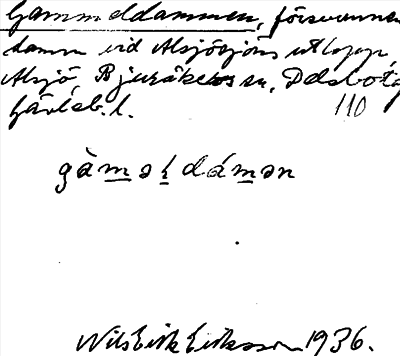 Gammeldammen, försvunnen
damm vid Alsjösjöns utlopp,
Alsjö, Bjuråkers sn, Delsbo tg
Gävleb. l. 110
gàməldámən
Nils Erik Eriksson 1936.